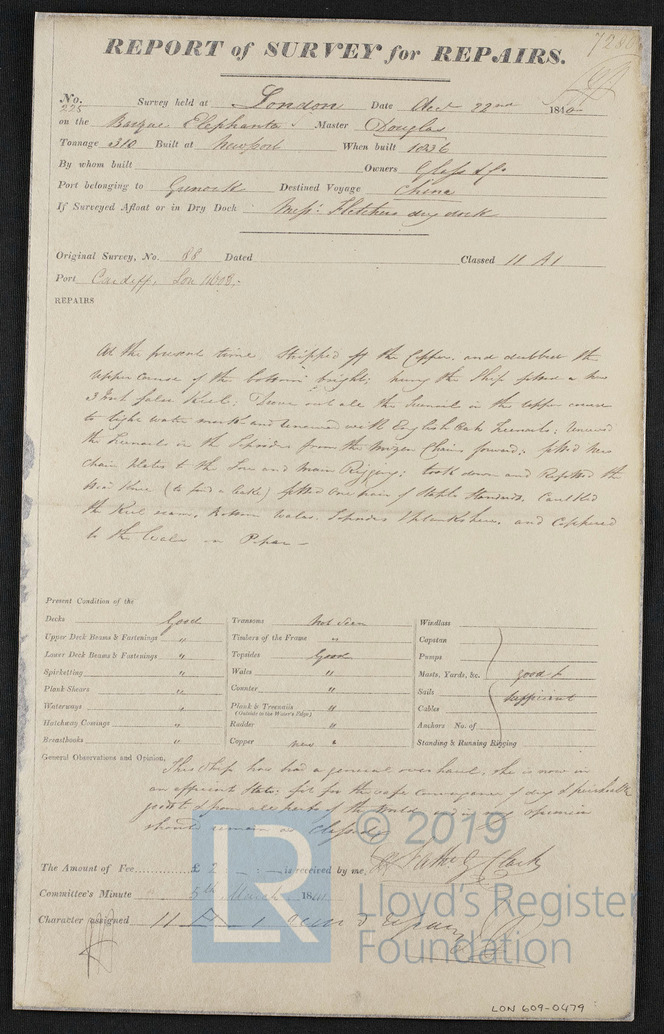 7280
REPORT of SURVEY for REPAIRS.
No. 225 Survey held at London Date 22nd 184
on the Barque Elephanta Master Douglas
Tonnage 310 Built at Newport When built 1836
By whom built Owners & Co
Port belonging to Greenock Destined Voyage China
If Surveyed Afloat or in Dry Dock Messrs Fletchers dry dock
Original Survey, No. 88 Dated Classed 11 A1
Port Cardiff, Lon
REPAIRS
At the present time Stripped off the Copper, and dubbed the
upper course of the bottom bright; hung the Ship fitted a new
3 Inch false Keel; Drove out all the Treenails in the upper course
to light water mark and renewed with English Oak Treenails; renewed
the Treenails in the Topsides from the Mizen Chains forward; fitted new
Chain plates to the Fore and Main Rigging; took down and Refitted the
(to find a leak) fitted one pair of Staple Standards. Caulked
the Keel seam, Bottom Wales, Topsides & Plankshear, and Coppered
to the Wales on Paper
Present Condition of the
Decks Good Transoms Not Seen Windlass
Upper Deck Beams & Fastenings " Timbers of the Frame " Capstan
Lower Deck Beams & Fastenings " Topsides Good Pumps
Spirketting " Wales " Masts, Yards, &c. good &
Plank Shears " Counter " Sails sufficient
Waterways " Plank & Treenails (Outside to the Water's Edge.) " Cables
Hatchway Coamings " Rudder " Anchors No. of
Breasthooks " Copper new " Standing & Running Rigging
General Observations and Opinion, This Ship has had a general overhaul, she is now in
an efficient State; fit for the safe conveyance of dry & perishable
goods to & from all parts of the World and in my opinion
should remain as Classed
The Amount of Fee £ 2 : - is received by me, Clark
Committee's Minute 5th March 184
Character assigned 11 A 1
© 2019
LR
Lloyd's Register
Foundation
LON 609-0479